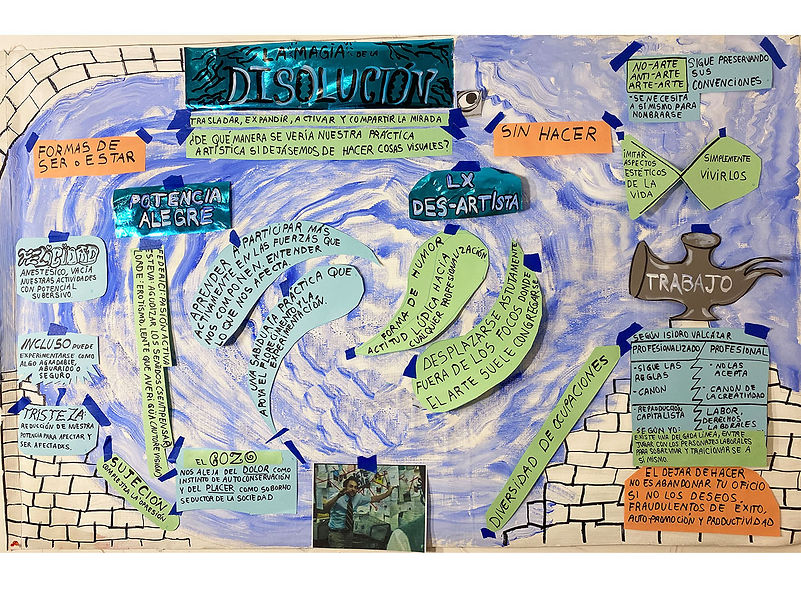 LA MAGIA DE LA
DISOLUCIÓN
TRASLADAR, EXPANDIR, ACTIVAR Y COMPARTIR LA MIRADA
¿DE QUÉ MANERA SE VERÍA NUESTRA PRÁCTICA
ARTÍSTICA SI DEJÁSEMOS DE HACER COSAS VISUALES?
FORMAS DE
SER O ESTAR
POTENCIA
ALEGRE
ANESTÉSICO, VACÍA
NUESTRAS ACTIVIDADES
CON POTENCIAL
SUBERSIVO.
INCLUSO PUEDE
EXPERIMENTARSE COMO
ALGO AGRADABLE,
ABURRIDO O
SEGURO
TRISTEZA:
REDUCCIÓN DE NUESTRA
POTENCIA PARA AFECTAR Y
SER AFECTADXS.
COMPARTIR LA OPRESIÓN
FEDERICI: PASIÓN ACTIVA
APRENDER A PARTICIPAR MÁS
ACTIVAMENTE EN LAS FUERZAS QUE
NOS COMPONEN, ENTENDER
LO QUE NOS AFECTA.
UNA SABIDURÍA PRÁCTICA QUE
APOYA EL FLORECIMIENTO Y LA
EXPERIMENTACIÓN.
EL GOZO
NOS ALEJA DEL DOLOR COMO
INSTINTO DE AUTOCONSERVACIÓN
Y DEL PLACER COMO SOBORNO
SEDUCTOR DE LA SOCIEDAD
LX
DES-ARTISTA
FORMA DE HUMOR
ACTITUD LÚDICA HACIA
CUALQUIER PROFESIONALIZACIÓN
DESPLAZARSE ASTUTAMENTE
FUERA DE LOS FOCOS DONDE
EL ARTE SUELE CONGREGARSE
SIN HACER
NO-ARTE
ANTI-ARTE
ARTE-ARTE
-SE NECESITA
A SÍ MISMO PARA
NOMBRARSE
SIGUE PRESERVANDO
SUS
CONVENCIONES
IMITAR
ASPECTOS
ESTÉTICOS
DE LA
VIDA
SIMPLEMENTE
VIVIRLOS
TRABAJO
DIVERSIDAD DE OCUPACIONES
SEGÚN ISIDRO VALCÁZAR
PROFESIONALIZADO PROFESIONAL
-SIGUE LAS
REGLAS
-NO LAS
ACEPTA
-CANON
-CANON DE
LA CREATIVIDAD
-REPRODUCCIÓN
CAPITALISTA
LABOR,
DERECHOS
LABORALES
SEGÚN YO:
EXISTE UNA DELGADA LÍNEA, ENTRE
JUGAR CON LOS PERSONAJES LABORALES
PARA SOBREVIVIR Y TRAICIONARSE A
SÍ MISMO.
EL DEJAR DE HACER
NO ES ABANDONAR TU OFICIO
SI NO LOS DESEOS,
FRAUDULENTOS DE ÉXITO,
AUTO-PROMOCIÓN Y PRODUCTIVIDAD